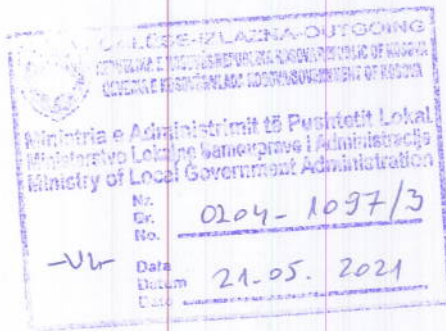 DALËSE-IZLAZNA-OUTGOING
REPUBLIKA E KOSOVËS-REPUBLIKA KOSOVA-REPUBLIC OF KOSOVA
QEVERIA E KOSOVËS-VLADA KOSOVA-GOVERNMENT OF KOSOVA
Ministria e Administrimit të Pushtetit Lokal
Ministarstvo Lokalne Samouprave i Administracije
Ministry of Local Government Administration
Nr.
Br. 0204-1097/3
No.
Data
Datum 21.05.2021
Date